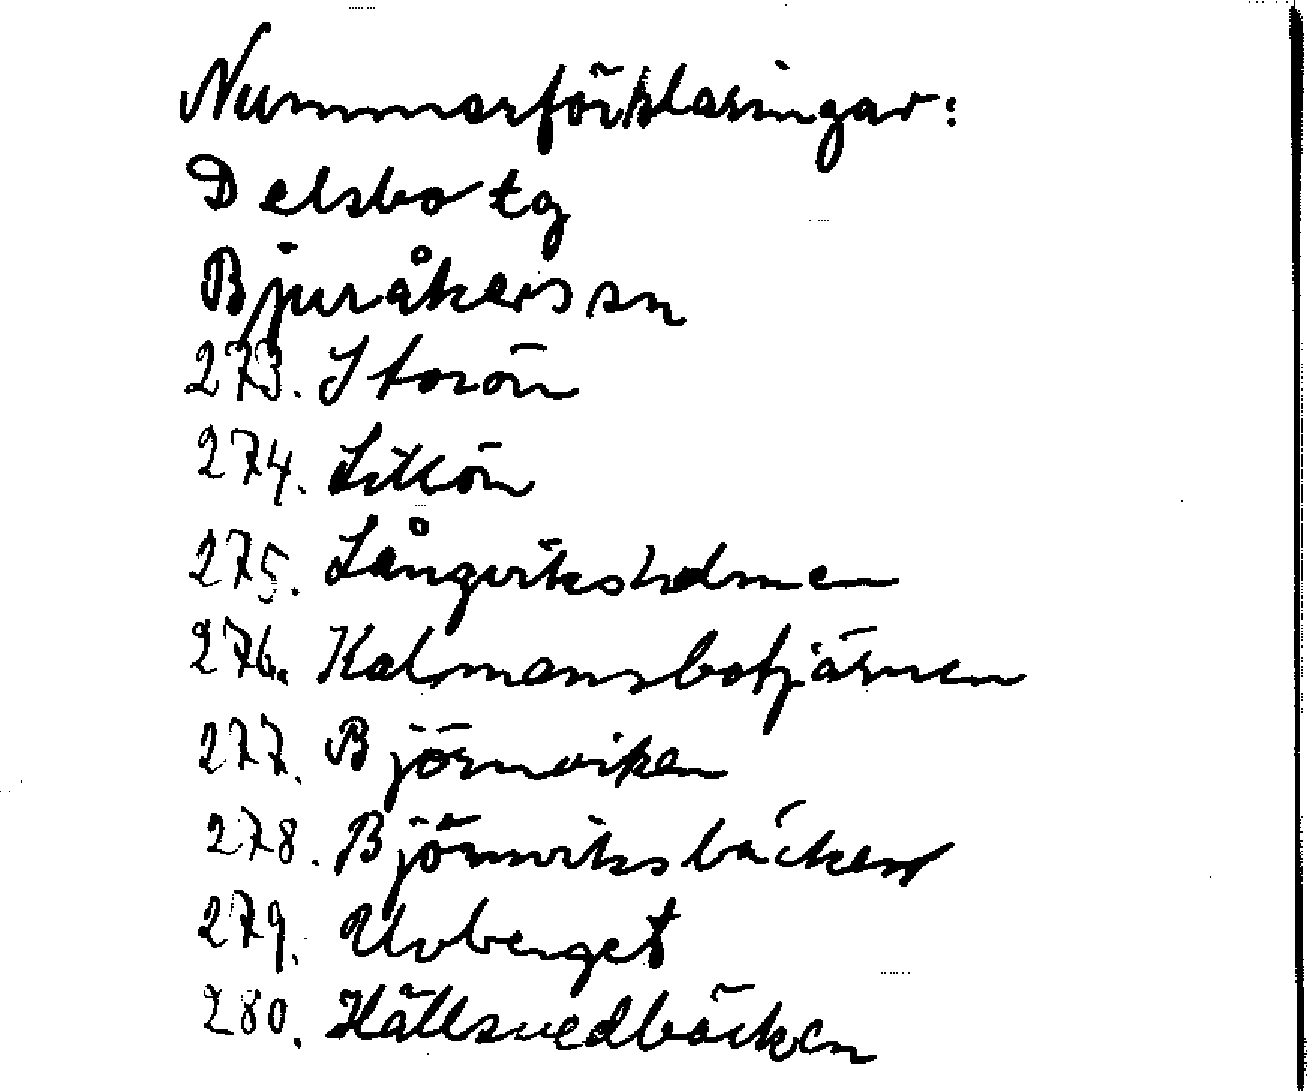 Nummerförklaringar:
Delsbo tg
Bjuråkers sn
273. Storön
274. Lillön
275. Långviksholmen
276. Kalmansbotjärnen
277. Björnviken
278. Björnviksbäcken
279. Uvberget
280. Hällsvedbäcken